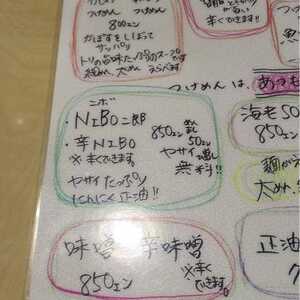 つけめん つけめん
800エン
かぼすをしぼって
サッパリ
トリの旨味たっぷりのスープです
細めん、太めん えらべます
辛くできます!!
つけめんは、
ニボ
・NIBO二郎
・辛NIBO
850エン
めんまし
50エン
※辛くできます。
ヤサイ増し
無料!!
ヤサイたっぷり
にんにく正油!!
海老50
850エン
太め、
味噌 辛味噌
850エン
※辛く
できます
正油